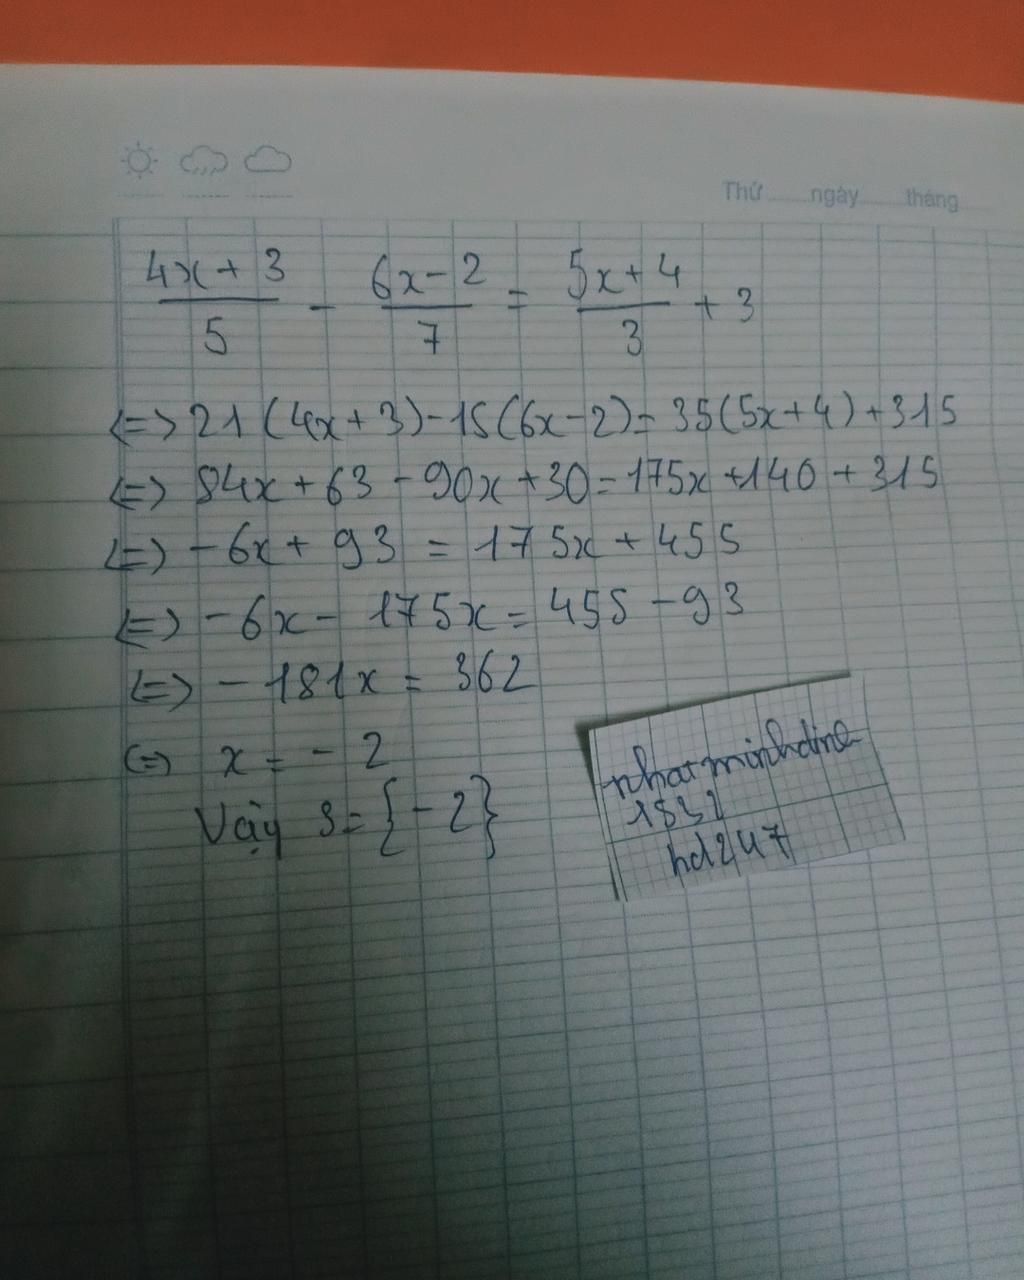 Thứ ngày tháng
4x+3/5 - 6x-2/7 = 5x+4/3 + 3
<=> 21(4x+3)-15(6x-2)=35(5x+4)+315
<=> 84x+63-90x+30=175x+140+315
<=> -6x+93 = 175x+455
<=> -6x-175x=455-93
<=> -181x = 362
<=> x = -2
Vậy S={-2}
hd247